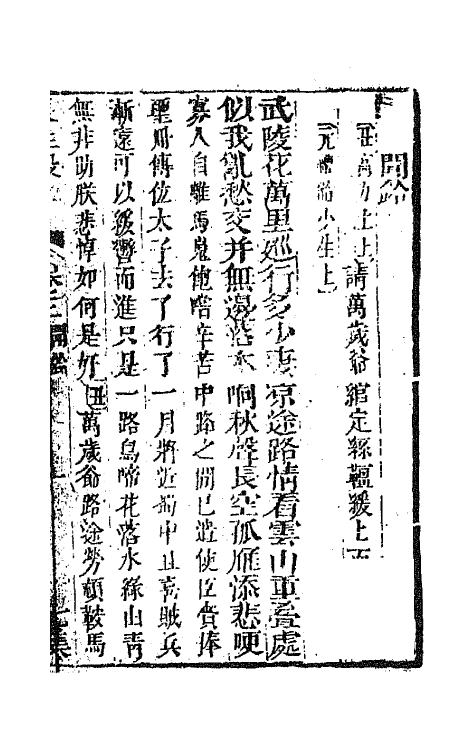 聞鈴
丑高力士上請萬歲爺綰定絲韁緩上
小生上
武陵花萬里巡行多少悽涼途路情看雲山重疊處
似我亂愁交并無邊落木响秋聲長空孤雁添悲哽
寡人自離馬嵬飽嘗辛苦中路之間已遣使臣賫捧
聖冊傳位太子去了行了一月將近蜀中且喜賊兵
漸遠可以緩轡而進只是一路鳥啼花落水綠山青
無非助朕悲悼如何是好丑萬歲爺路途勞頓鞍馬